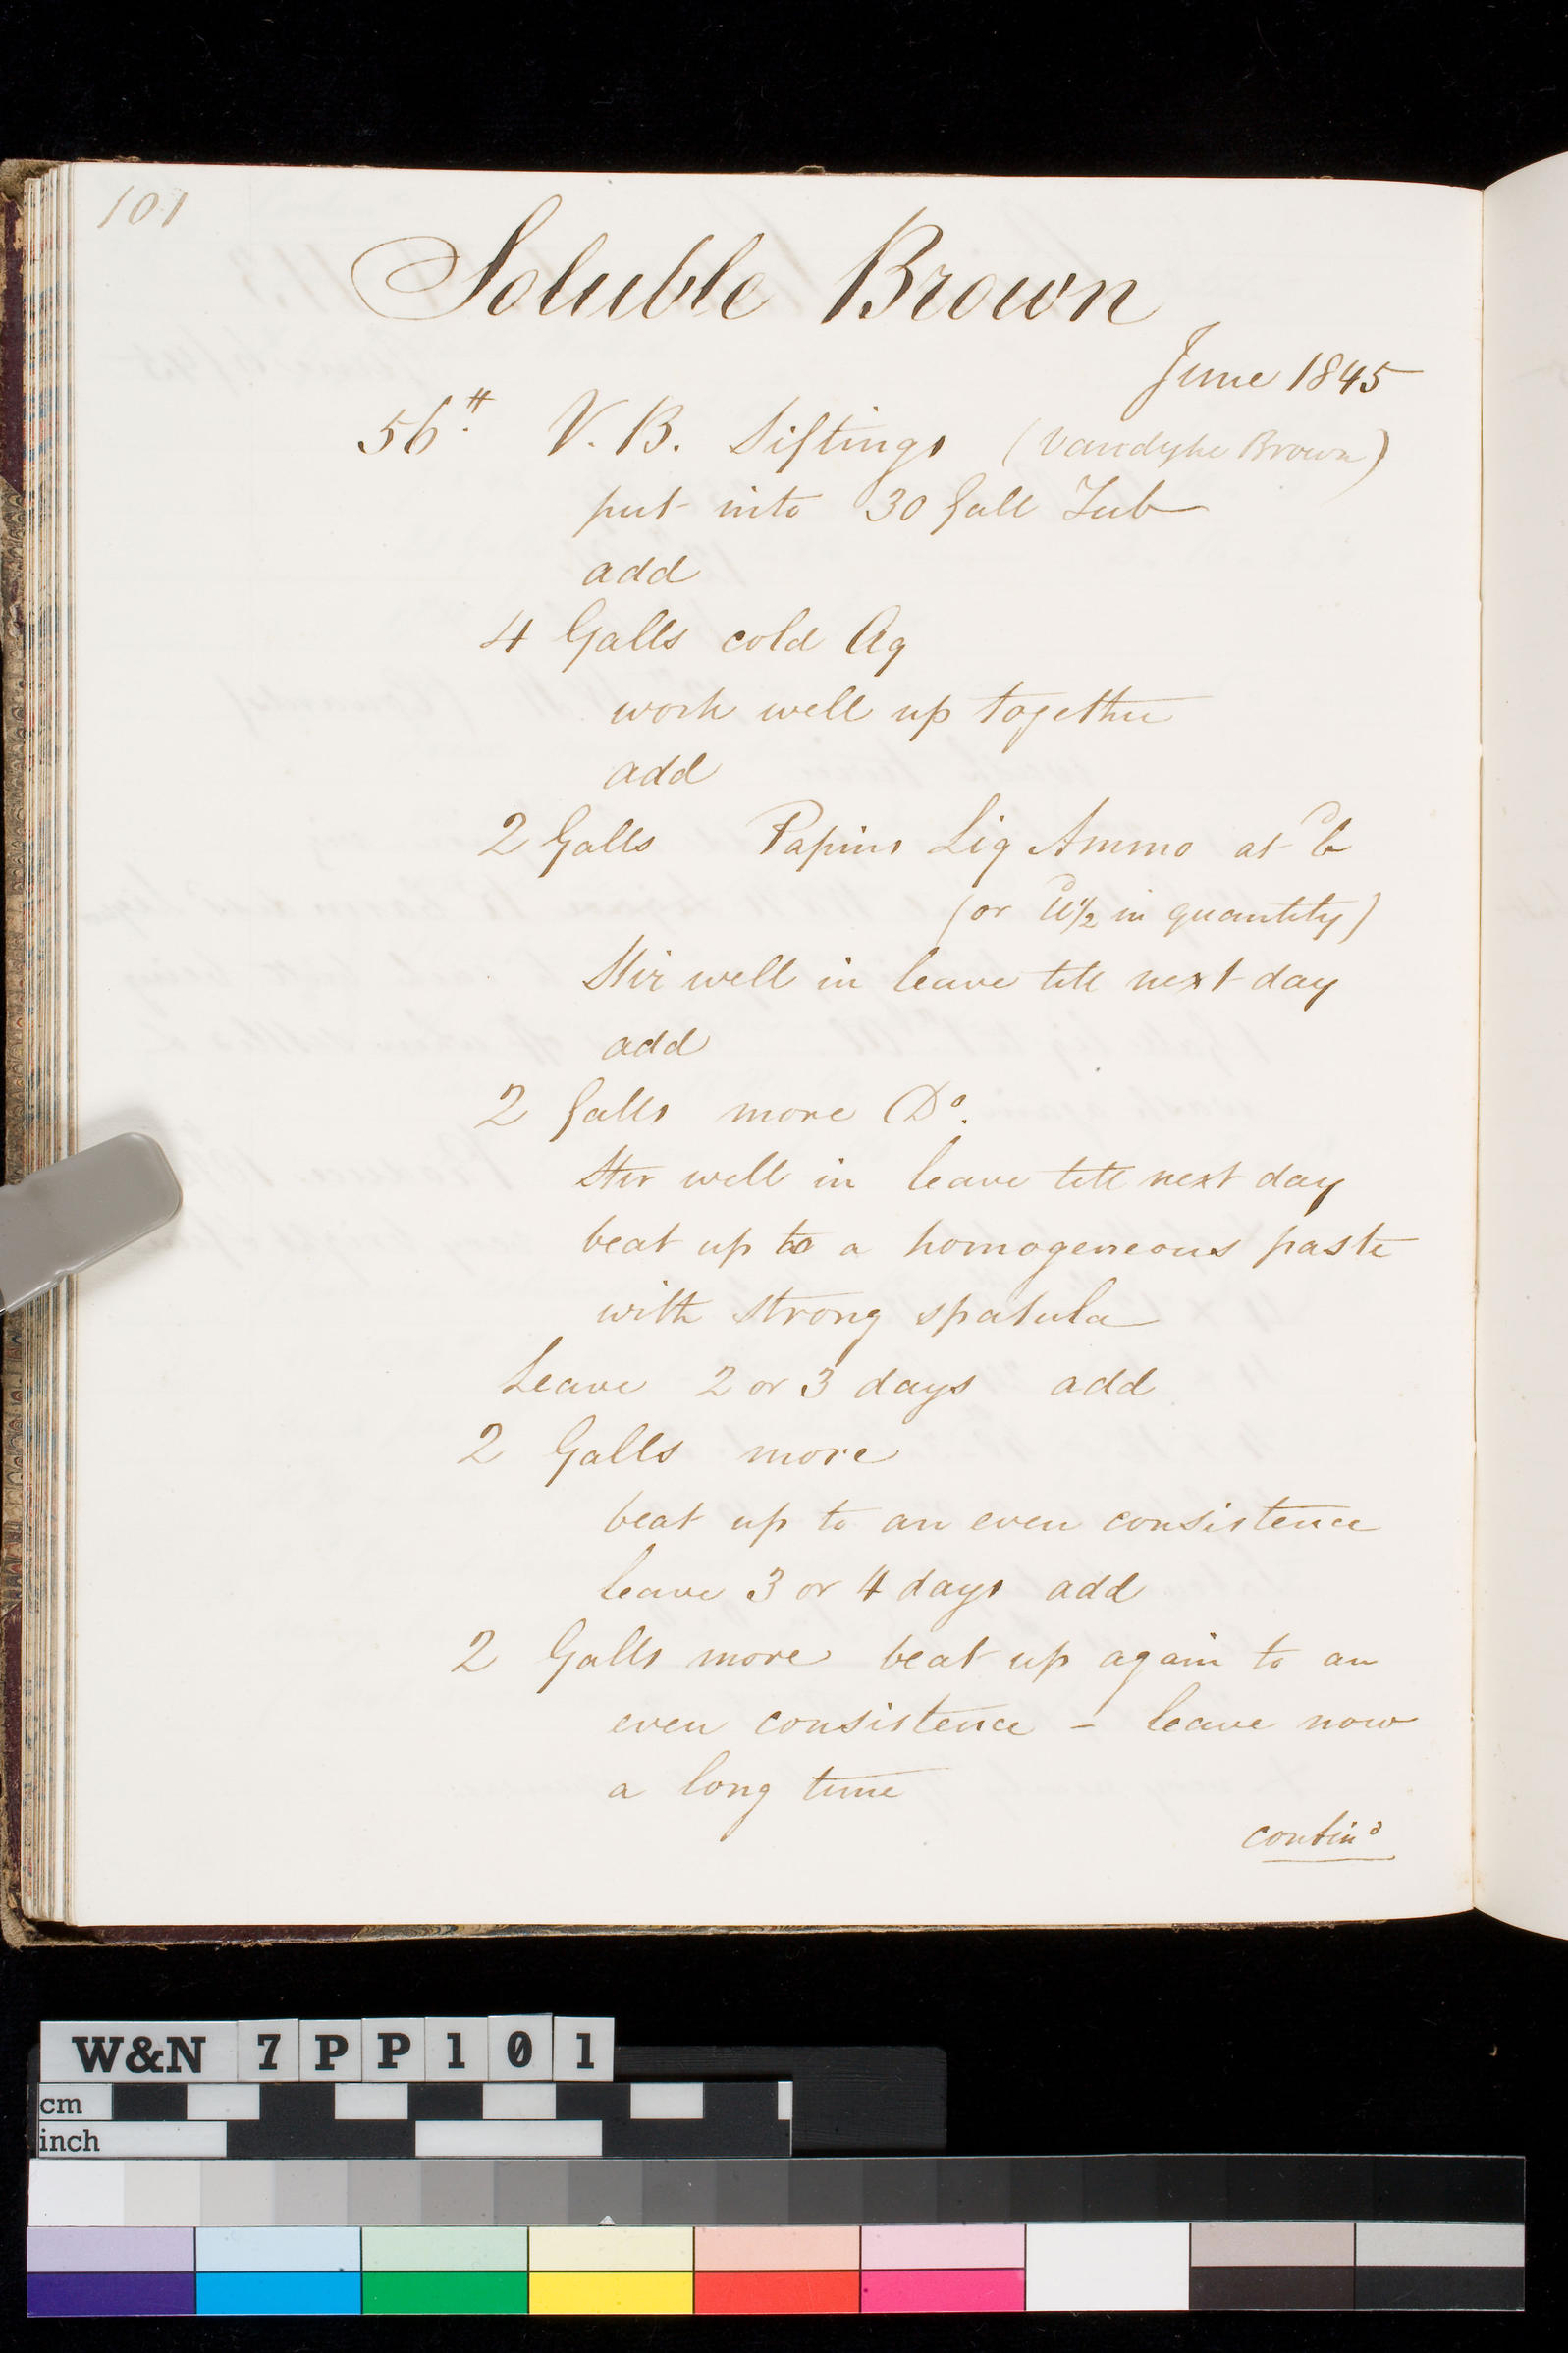 101
Soluble Brown
June 1845
56# V. B. Siftings (Vandyke Brown)
put into 30 Gall Tub
add
4 Galls cold Aq
work well up together
add
2 Galls Papins Liq Ammo at
(or in quantity)
Stir well in leave till next day
add
2 Galls more Do.
Stir well in leave till next day
beat up to a homogeneous paste
with strong spatula
Leave 2 or 3 days add
2 Galls more
beat up to an even consistence
leave 3 or 4 days add
2 Galls more beat up again to an
even consistence - leave now
a long time
contind
W&N 7PP101
cm
inch